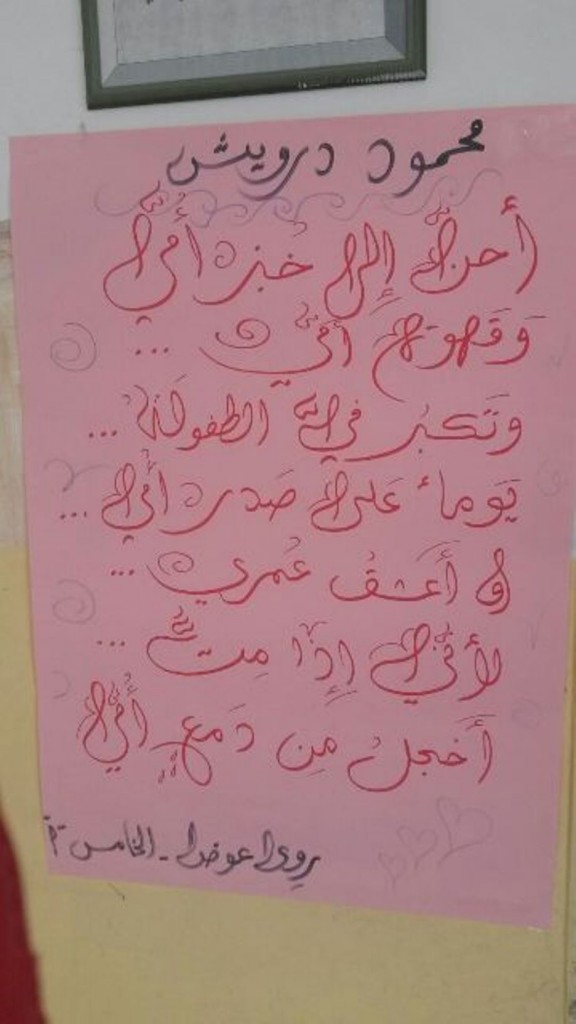 محمود درويش
أحنُّ إلى خُبز أمي
وَقَهوَة أمّي ...
وتَكبُر فيَّ الطفولَة ...
يَوماً عَلى صَدر أُمي ...
و أَعشَقُ عُمري ...
لأنّي إِذا مِتُّ ...
أَخجلُ مِن دَمعِ أُمّي
عوض - الخامس